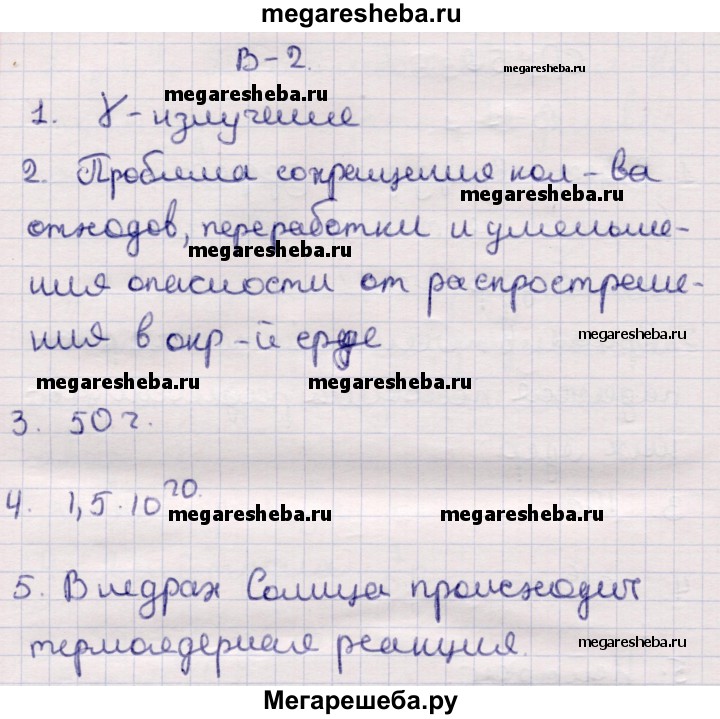 megaresheba.ru
В-2.
megaresheba.ru
megaresheba.ru
1. γ-излучение
2. Проблема сокращения кол-ва
megaresheba.ru
отходов, переработки и уменьше-
megaresheba.ru
ния опасности от распростране-
ния в окр-й среде
megaresheba.ru
megaresheba.ru
megaresheba.ru
3. 50 г.
4. 1,5·10²⁰.
megaresheba.ru
megaresheba.ru
5. В недрах Солнца происходит
термоядерная реакция.
megaresheba.ru
Мегарешеба.ру